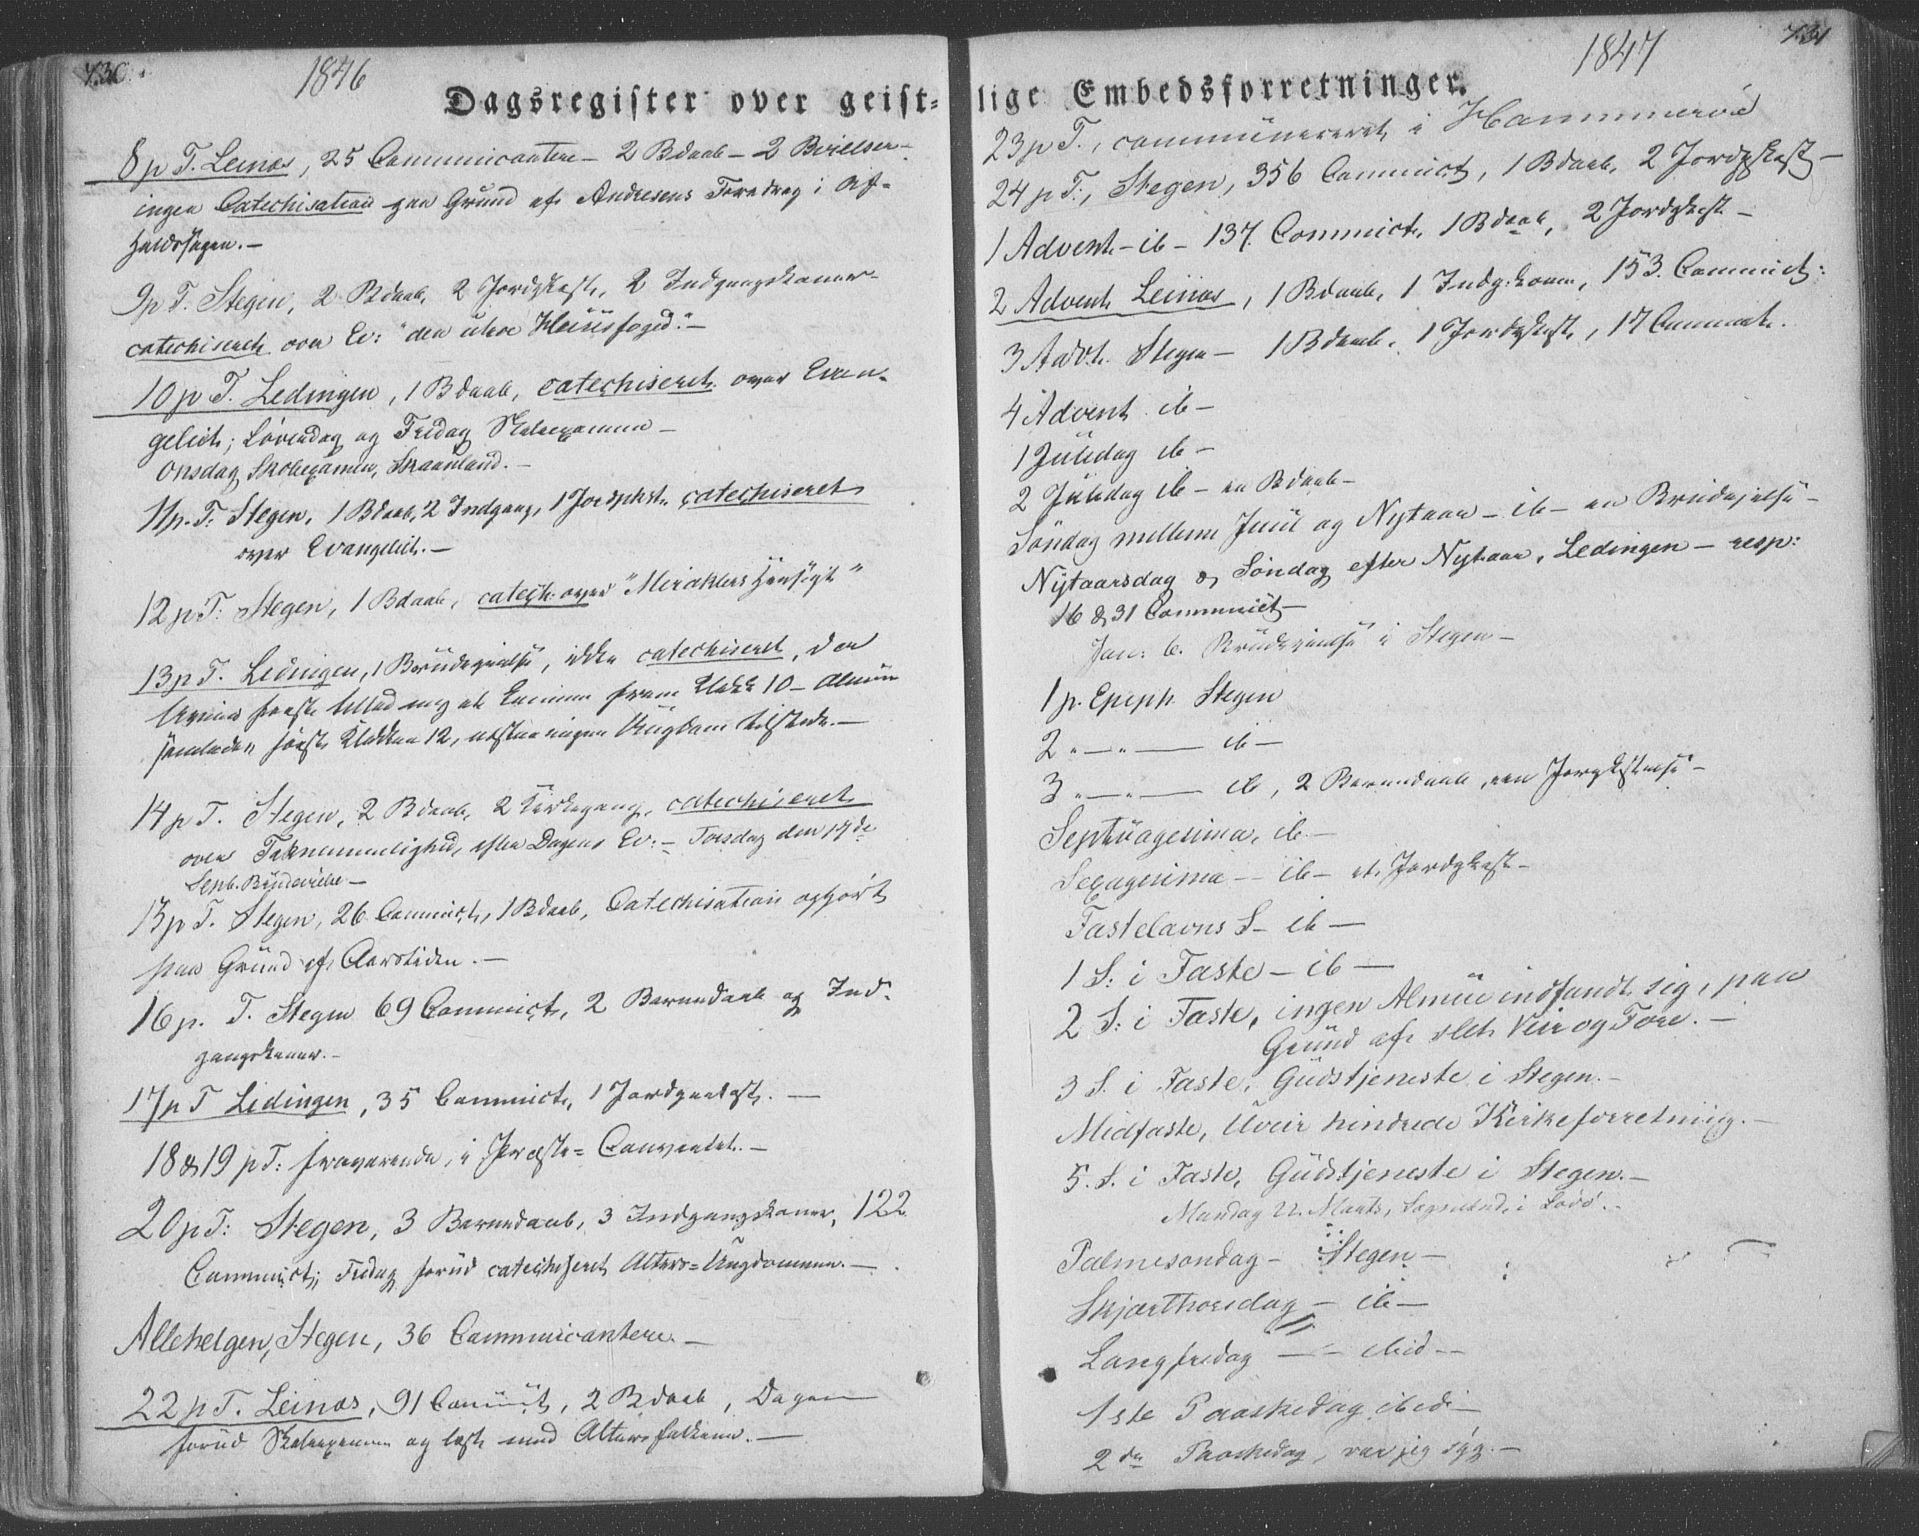 730.
1846
Dagsregister over geist=
8 p T. Leines, 25 Communicantere – 2 Bdaab – 2 Bvielser –
ingen Catechisation paa Grund af Andresens Foredrag i Af-
holdssagen. –
9 p T. Stegen, 2 Bdaab, 2 Jordpkast, 2 Indgangskoner –
catechiseret over Ev: "den utroe Huusfoged". –
10 p T. Ledingen, 1 Bdaab, catechiseret over Evan-
geliet; Løverdag og Fredag Skoleexamen –
Onsdag Skoleexamen, Skaanland. –
11 p. T. Stegen, 1 Bdaab, 2 Indgang, 1 Jordpkst. catechiseret
over Evangeliet. –
12 p T: Stegen, 1 Bdaab, catech. over "Miraklers Hensigt"
13 p T. Ledingen, 1 Brudevielse, ikke catechiseret, da
først tillod mig at komme frem Klokk 10 – Almuen
samledes først Klokken 12, næsten ingen Ungdom tilstede. –
14 p T. Stegen, 2 Bdaab, 2 Kirkegang, catechiseret
over Taknemmelighed, efter Dagens Ev: – Torsdag den 17de
Septb. Brudevielse –
15 p T. Stegen, 26 Commict, 1 Bdaab, Catechisation ophørt
paa Grund af Aarstiden. –
16 p. T. Stegen 69 Commict, 2 Barnedaab og Ind-
gangskoner. –
17 p T Ledingen, 35 Commict, 1 Jordpaakast. –
18 & 19 p T: fraværende, i Præste= Conventet. –
20 p T: Stegen, 3 Barnedaab, 3 Indgangskoner, 122
Commict; Fredag forud catechiseret Alters=Ungdommen. –
Allehelgen, Stegen, 36 Communicantere –
22 p T. Leines, 91 Commict, 2 Bdaab, Dagen
forud Skoleexamen og læst med Altersfolkene. –
731
1847
lige Embedsforretninger.
23 p T., communiceret i Hammerøe
24 p T:, Stegen, 356 Commict, 1 Bdaab, 2 Jordpkast –
1 Advent – ib – 137 Commict, 1 Bdaab, 2 Jordpkast –
2 Advent Leines, 1 Bdaab, 1 Indg.kone, 153 Commict:
3 Advt. Stegen – 1 Bdaab, 1 Jordpkast, 17 Commict.
4 Advent ib –
1 Juledag ib –
2 Juledag ib – en Bdaab –
Søndag mellem Juul og Nytaar – ib – en Brudevielse –
Nytaarsdag & Søndag efter Nytaar, Ledingen – resp:
16 & 31 Commict –
Jan: 6. Brudevielse i Stegen –
1 p. Epiph Stegen
2 " – " – ib –
3 " – " – ib, 2 Barnedaab, en Jordpkastelse –
Septuagesima, ib. –
Sexagesima – ib – et Jordpkast –
Fastelavns S – ib –
1 S: i Faste – ib –
2 S: i Faste, ingen Almue indfandt sig, paa
Grund af slet Veir og Føre. –
3 S. i Faste, Gudstjeneste i Stegen. –
Midfaste, Uveir hindrede Kirkeforretning. –
5. S. i Faste, Gudstjeneste i Stegen. –
Mandag 22. Marts,
Palmesøndag – Stegen –
Skjærthorsdag – ib –
Langfredag – ibid –
1ste Paaskedag ibid –
2den Paaskedag, var jeg syg. –